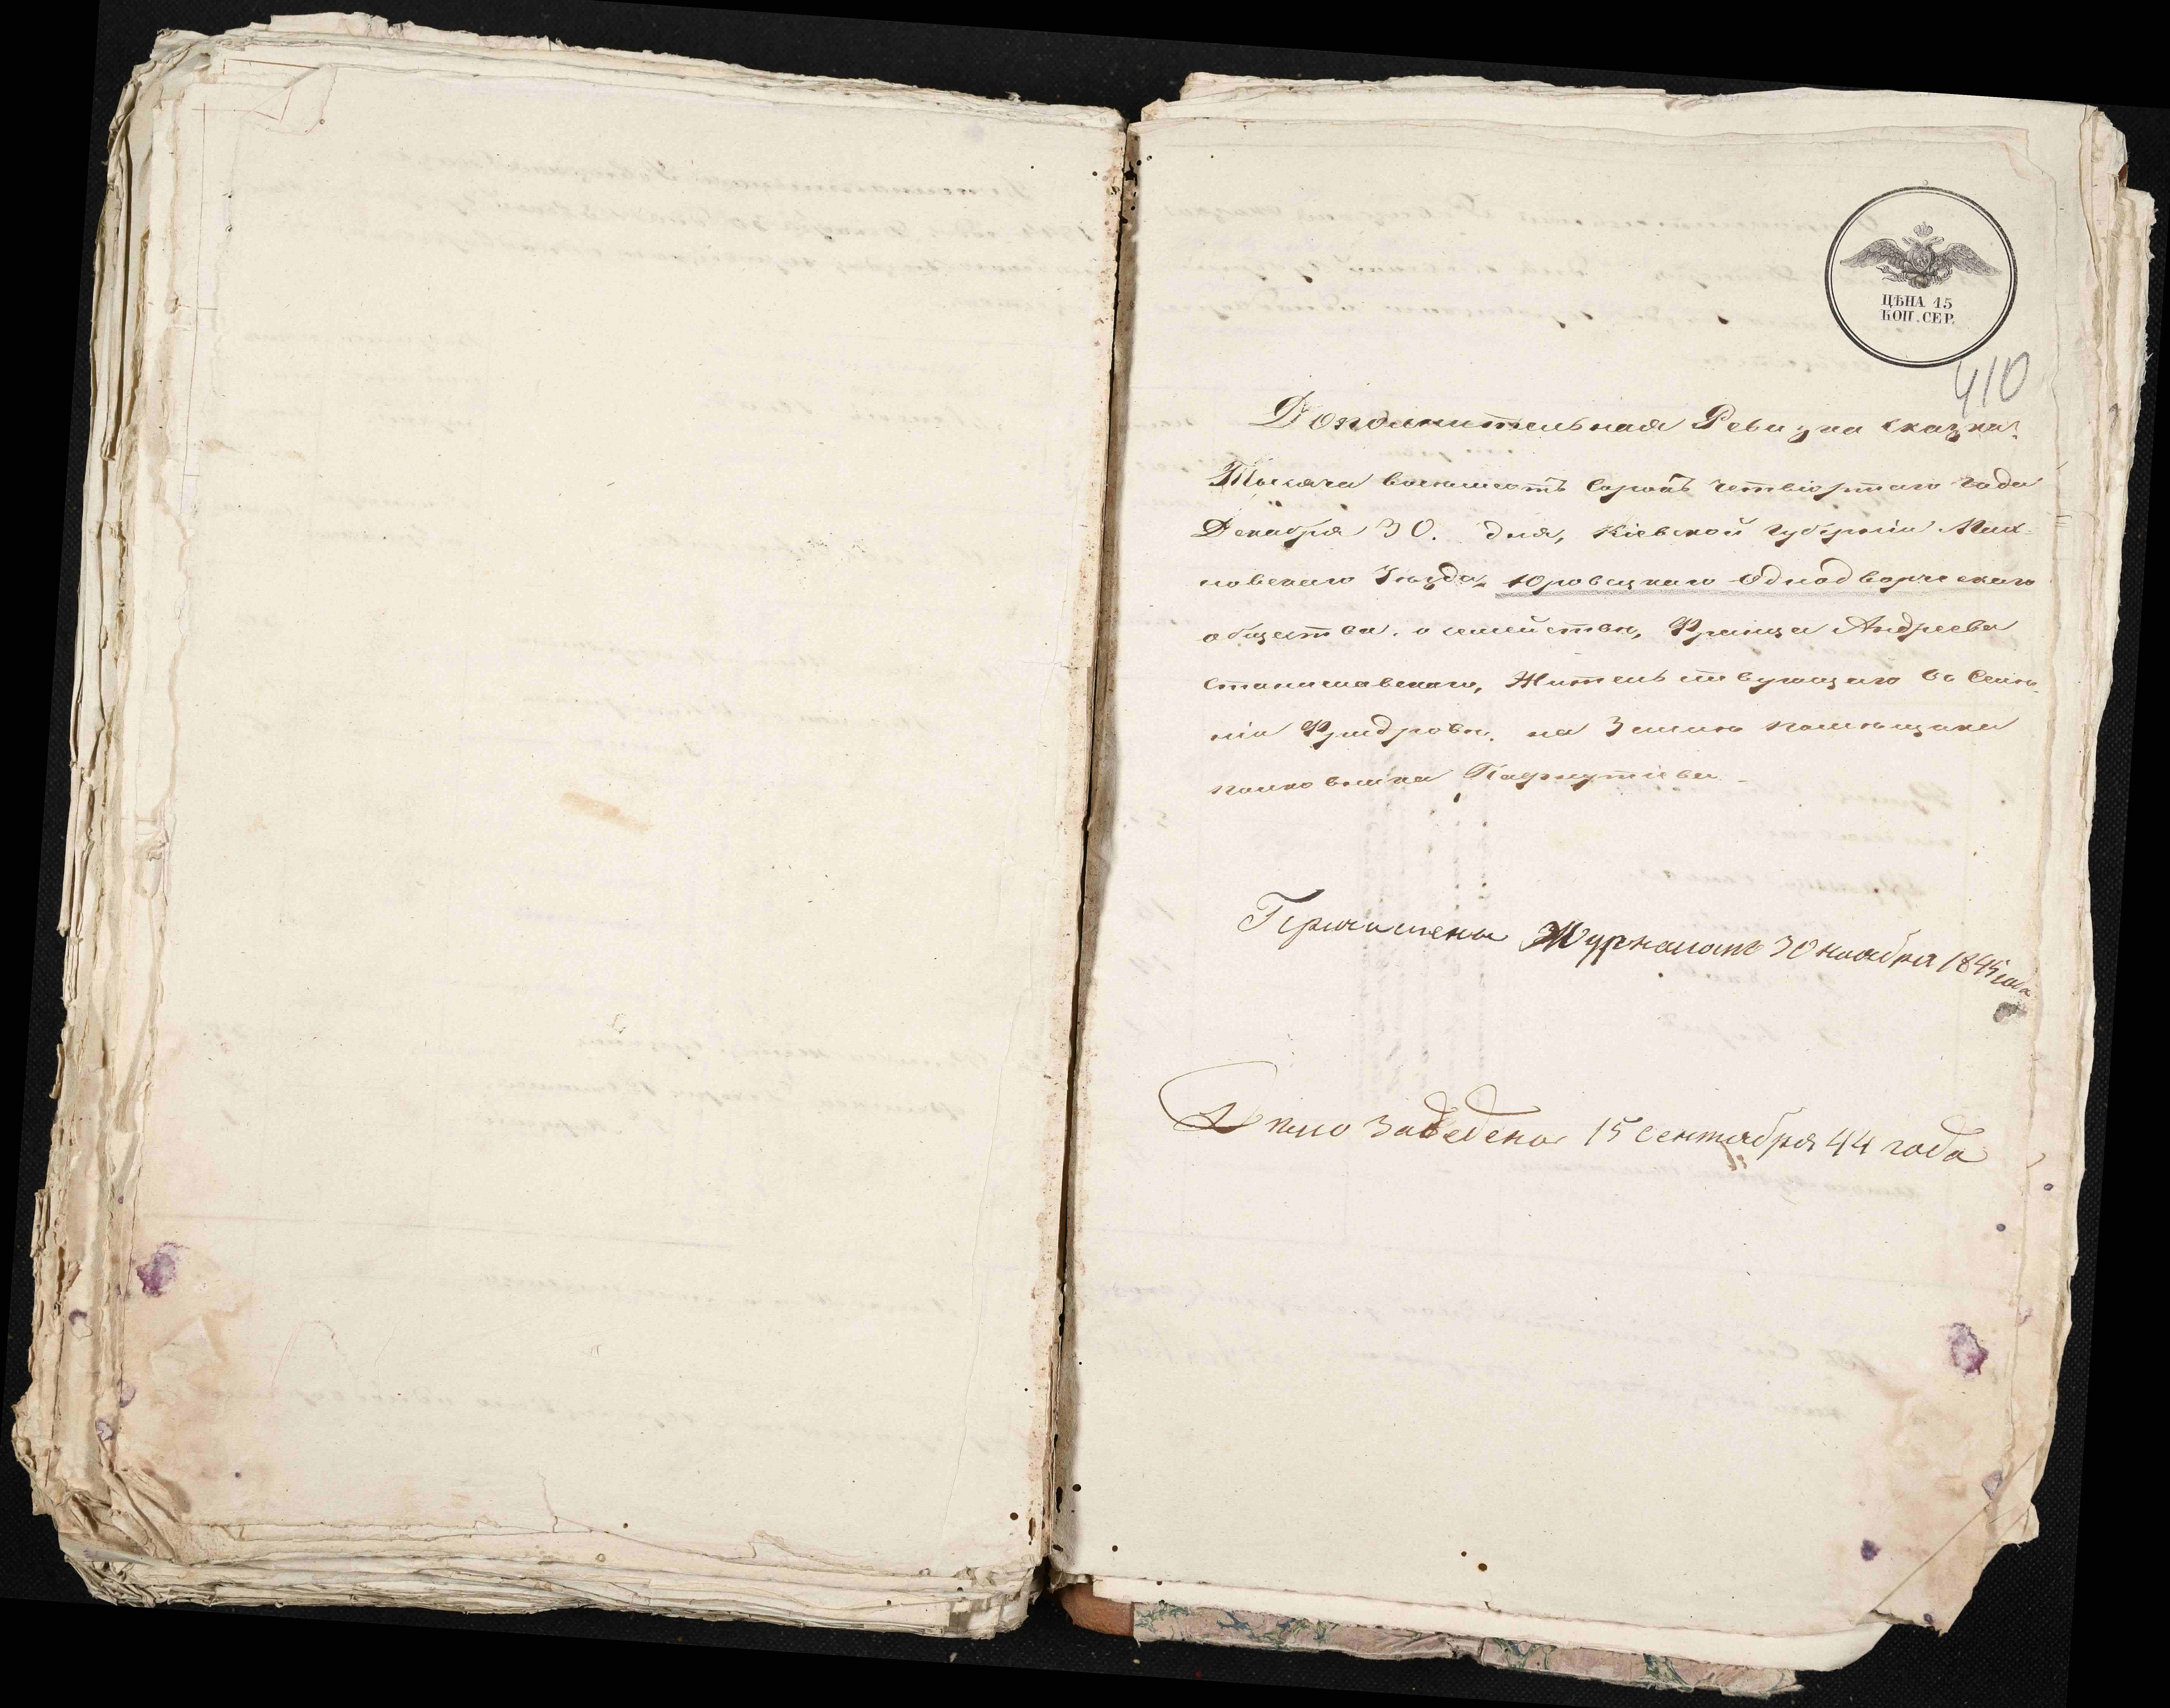 ЦѢНА 15
КОП. СЕР.
410
Дополнительная Ревизка сказка.
Тысяча восемьсотъ сорокъ четвіортаго года
Декабря 30. дня, Кіевской губерніи Мах-
новскаго Уѣзда, Юровецкаго Однодворческаго
общества. о семействѣ, Франца Андреева
Станишевскаго, Жительствующаго въ Селѣ-
ніи Фридровкѣ. на Землѣ помѣщика
полковника Пафнутіева
Причислены Журналомъ 30 ноября 1845 года
Дѣло заведено 15 сентября 44 года